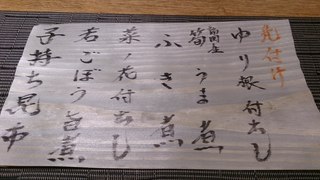 先付け
ゆり根付出し
筍うま煮
ふき煮
菜ノ花付出し
若ごぼう旨煮
子持ち昆布